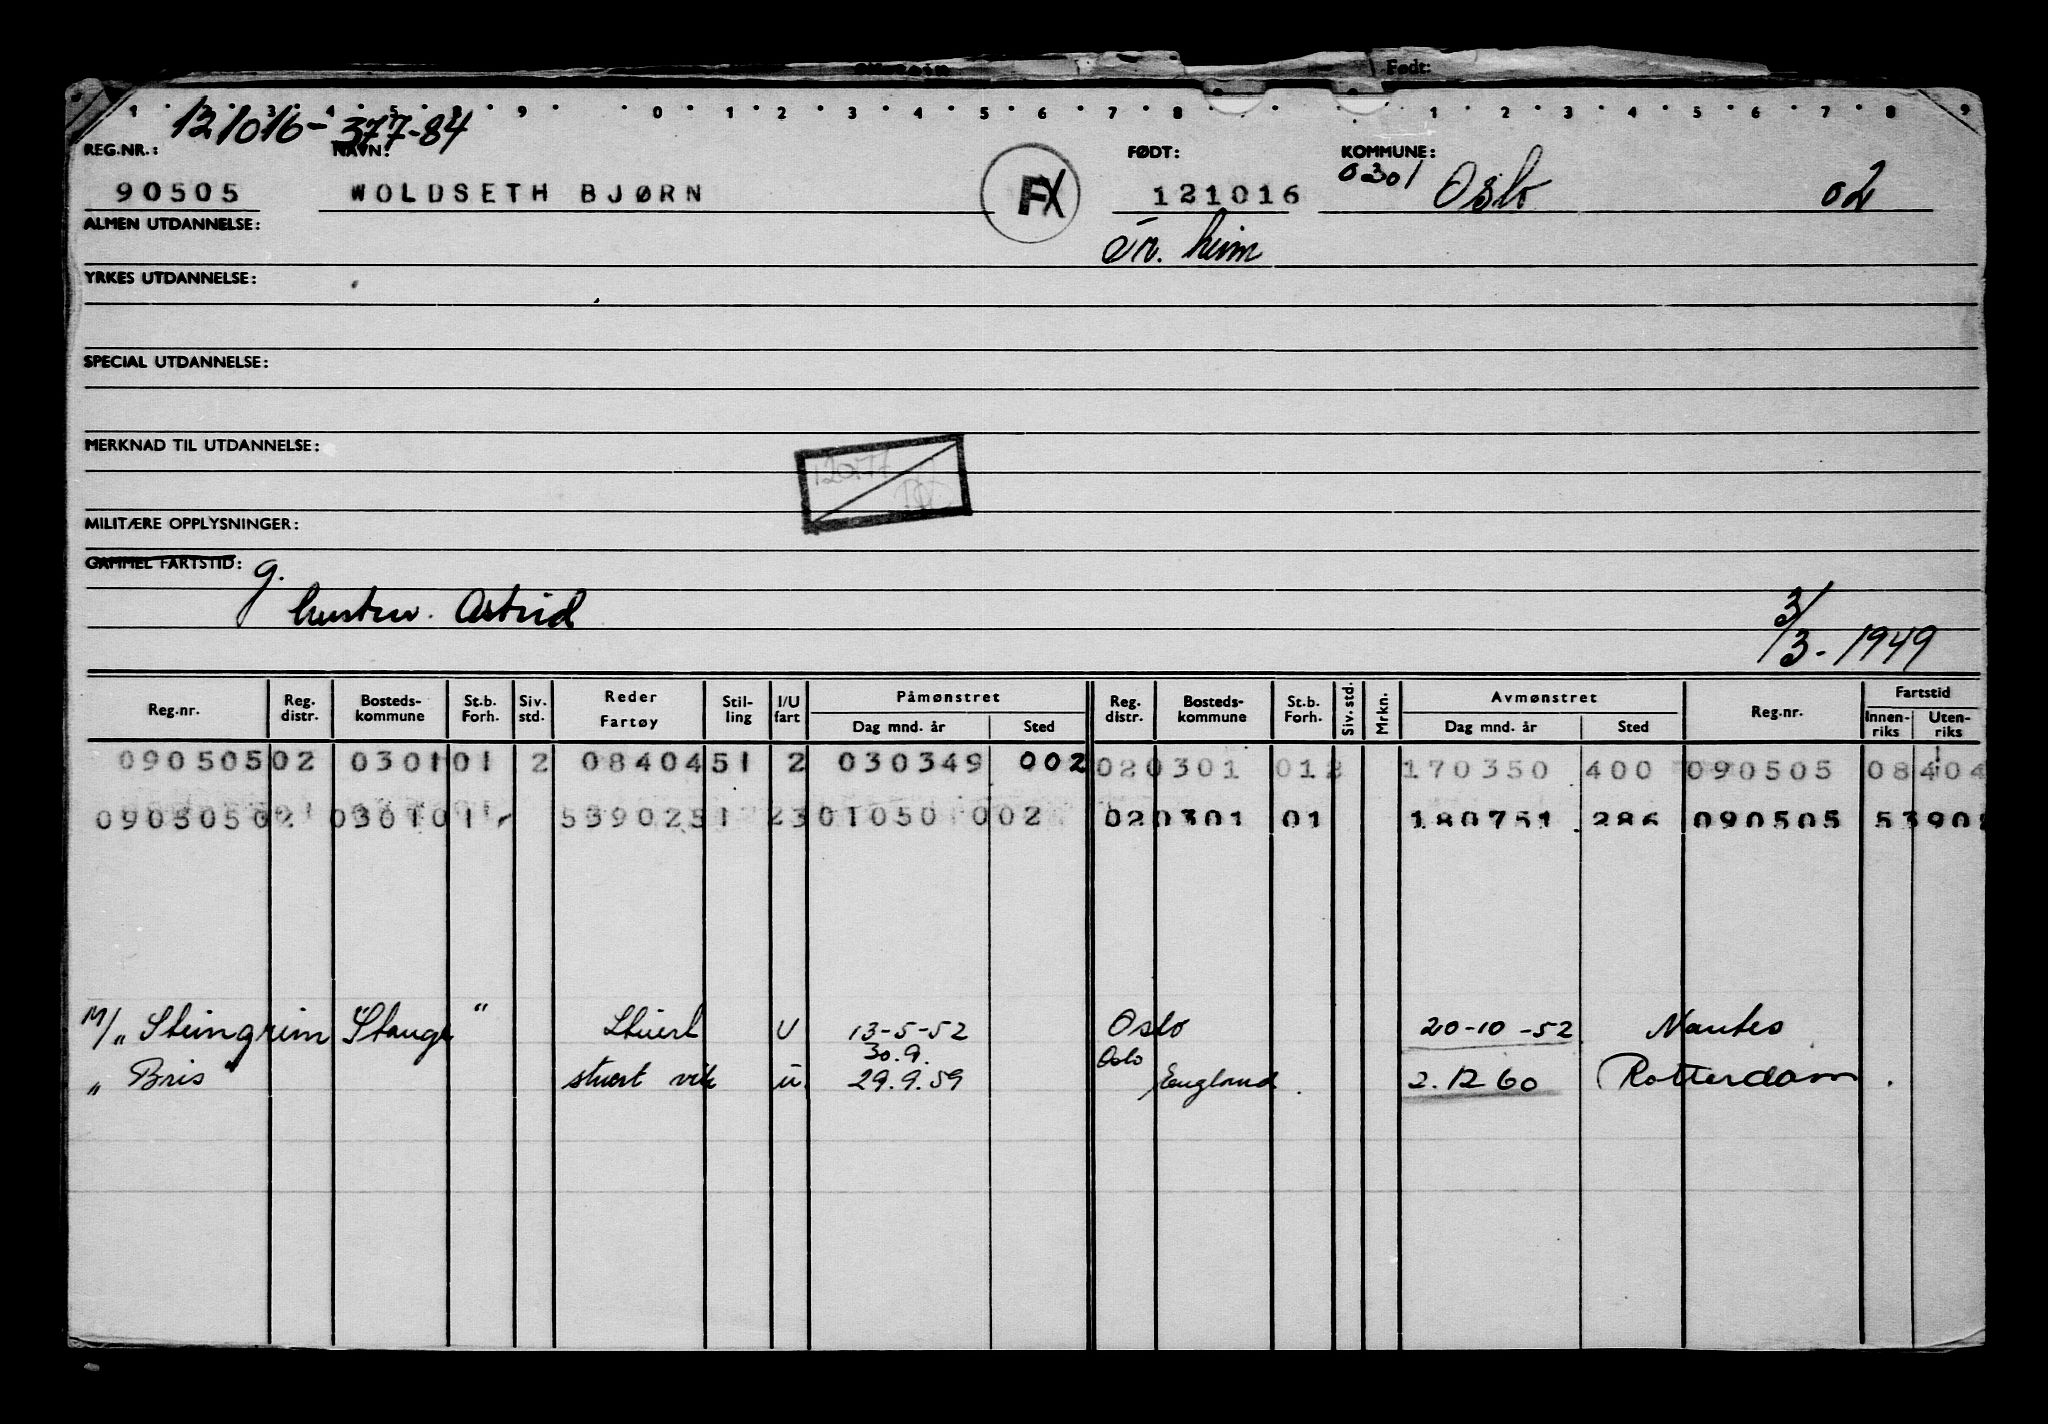 Født:
1 2 3 4 5 8 9 0 1 2 3 4 5 6 7 8 1 2 3 4 5 6 7 8 9
121016-37784
REG.NR.: NAVN: FØDT: KOMMUNE:
90505 WOLDSETH BJØRN FX 121016 0301 Oslo 02
ALMEN UTDANNELSE: Tr. heim
YRKES UTDANNELSE:
SPECIAL UTDANNELSE:
MERKNAD TIL UTDANNELSE:
MILITÆRE OPPLYSNINGER:
GAMMEL FARTSTID: g.
hustru. Astrid 3/3-1949
Reg.nr. Reg. distr. Bosteds-kommune St.b. Forh. Siv. std. Reder Fartøy Stil-ling I/U fart Påmønstret Dag mnd. år Sted Reg. distr. Bosteds-kommune St.b. Forh. Siv. std. Mrkn. Avmønstret Dag mnd. år Sted Reg.nr. Fartstid Innen-riks Uten-riks
090505 02 0301 01 2 08404 51 2 030349 002 02 0301 01 2 170350 400 090505 08404
090505 02 0301 01 53902 51 2 301050 002 02 0301 01 180751 286 090505 5390
M/" Steingrim Stange" Stuert U 13-5-52 Oslo 20-10-52 Nantes
30.9. Oslo
" Bris" stuert vik u. 29.9.59 England. 2.12 60 Rotterdam.